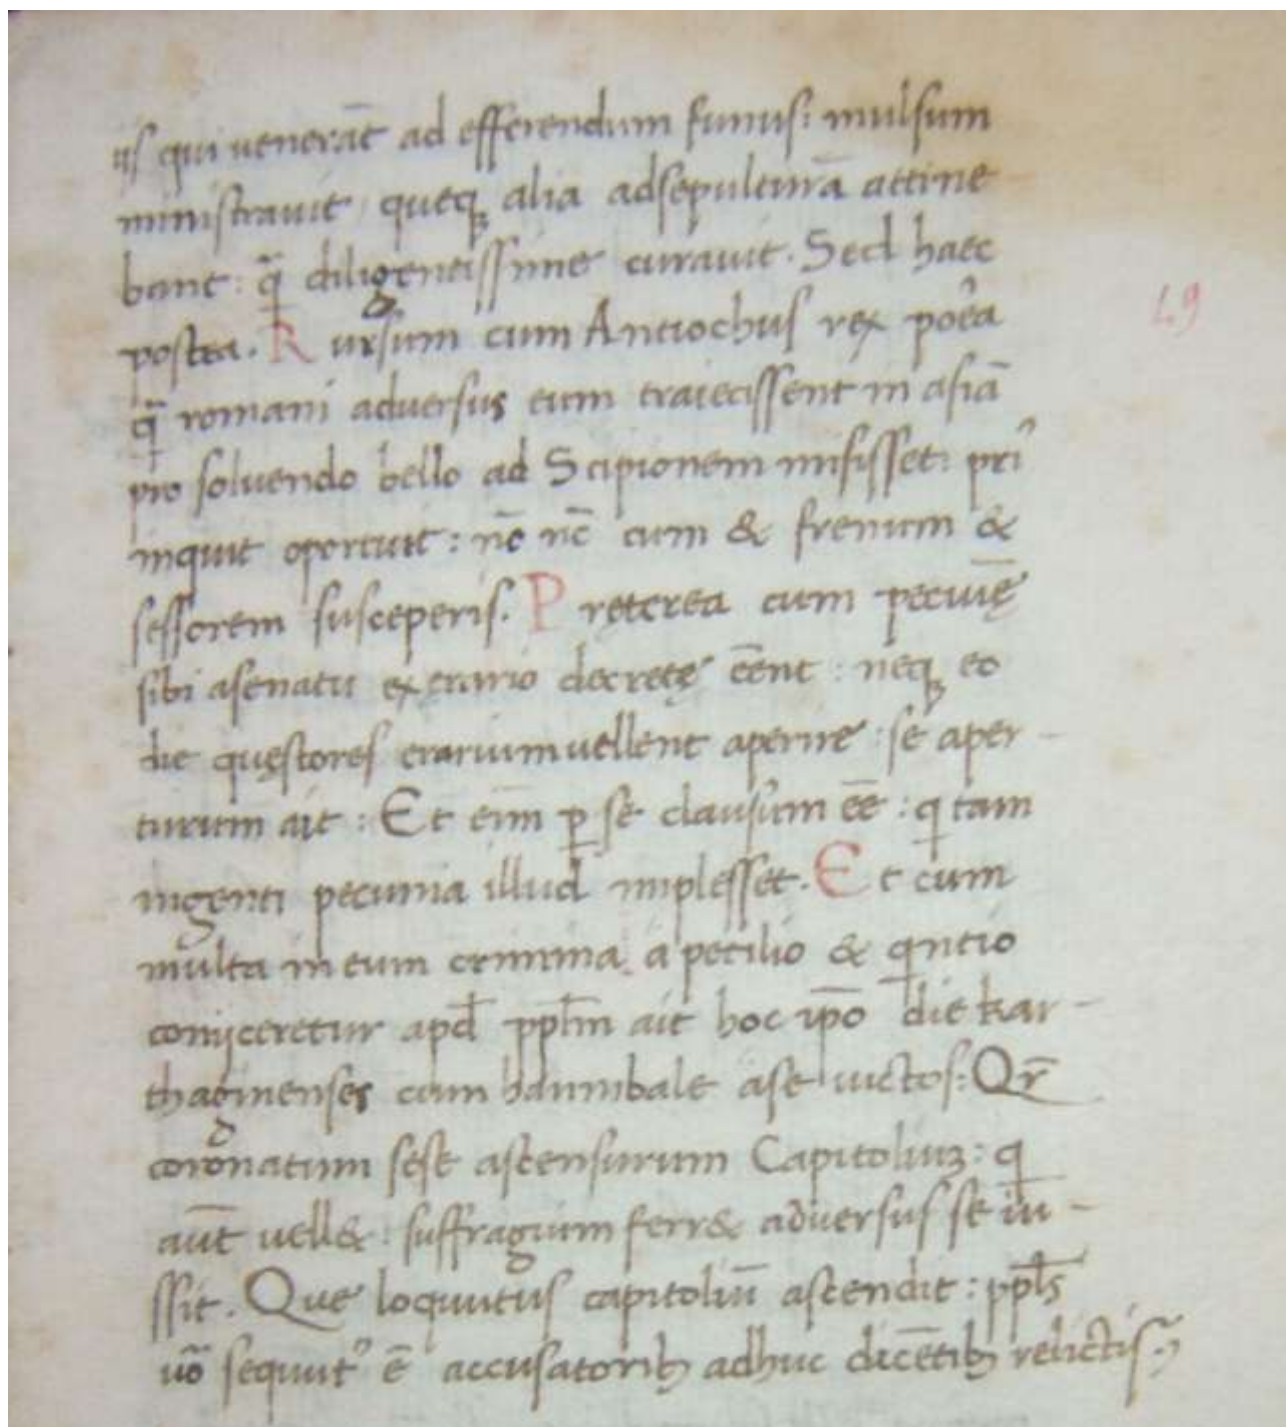 ijs qui venerāt ad efferendum funus: mulsum
ministravit, queq; alia adsepulturā attine
bant: q̄ diligentissime curavit. Sed haec
postea. Rursum cum Antiochus rex po&#x305;ea
q̄ romani adversus eum traiecissent in asiā
pro soluendo bello ad Scipionem misisset: pri⁹
inquit oportuit: nō nc̄ cum & frenum &
sessorem susceperis. Pręterea cum pecuīę
sibi asenatu ex erario decretę eēnt: neq; eo
die quęstores erarium vellent aperire: se aper-
turum ait: Et eīm p̱ se clausum eē: q tam
ingenti pecunia illud implesset. Et cum
multa in eum crimina a petilio & qntio
conijceretur apd̄ ppl̄m ait hoc ip̄o die kar-
thaginenses cum hannibale ase victos: Qr̄
coronatum sese ascensurum Capitoliuʒ: q
aūt vell& suffragium ferr& adversus se iu-
ssit. Que loquutus capitoliū ascendit: ppl̄s
uō sequut⁹ ē accusatorib; adhuc dicētib; relictis.
49